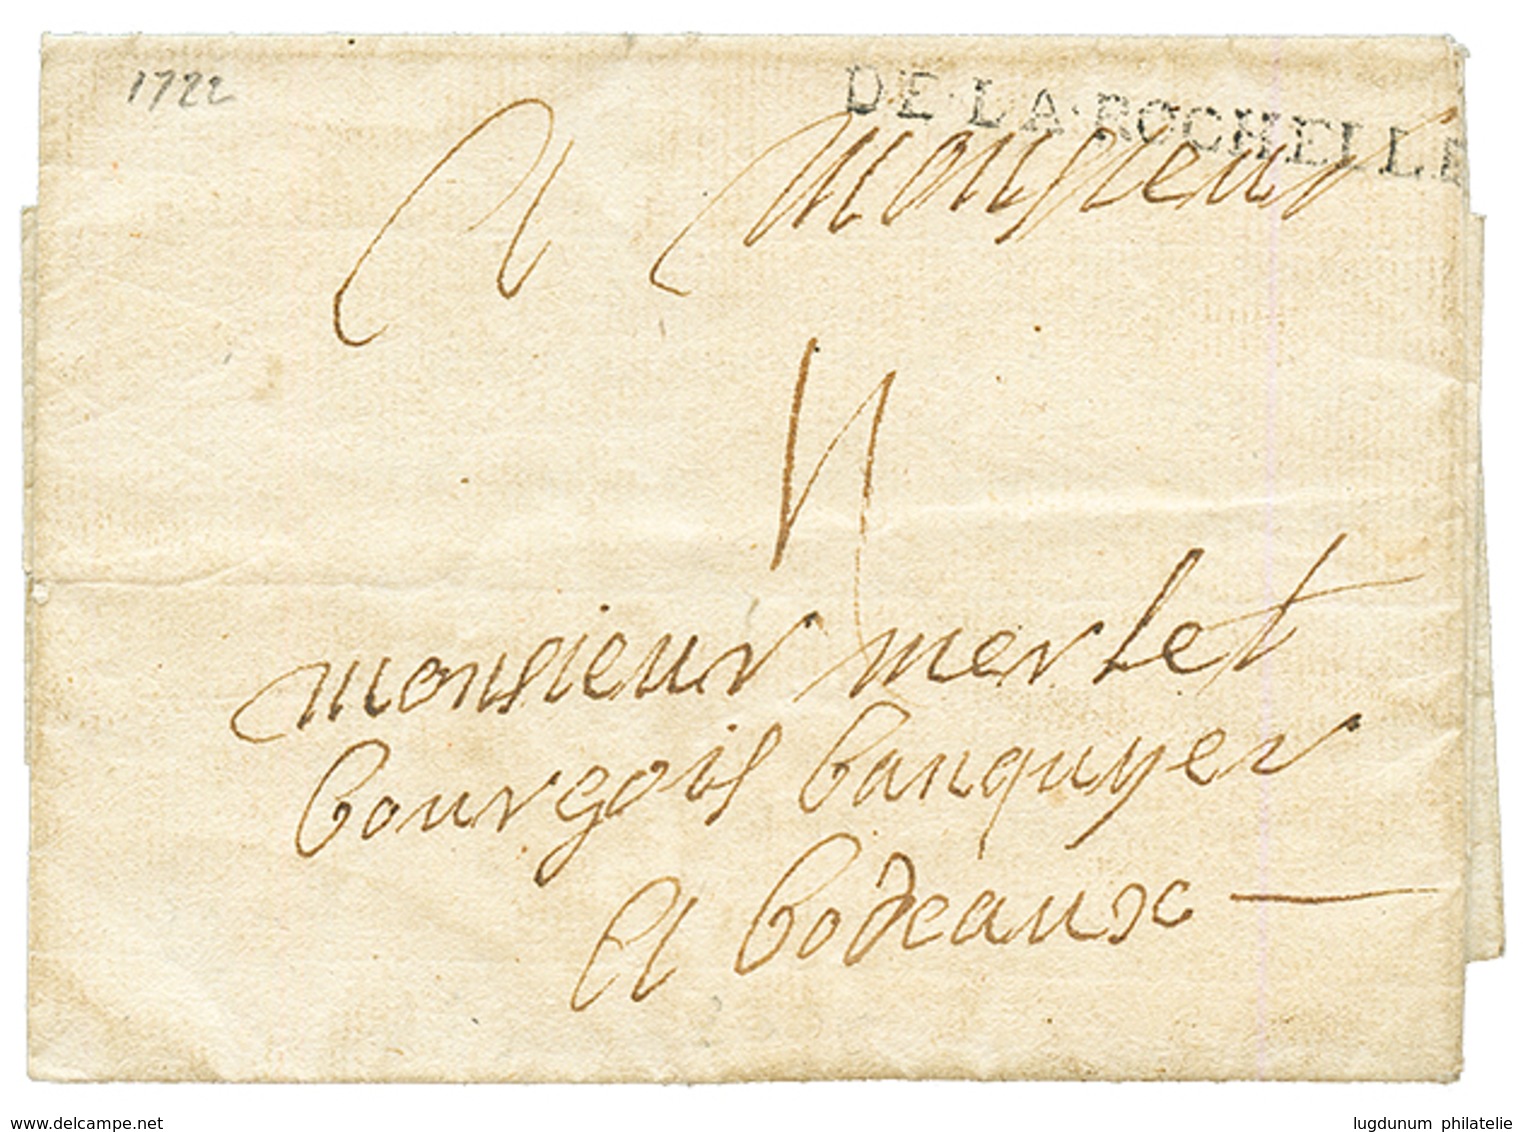 1722
DE·LA·ROCHELLE
A Monsieur
monsieur merlet
bourgois banquyer
A bodeaux
www.delcampe.net
lugdunum philatelie